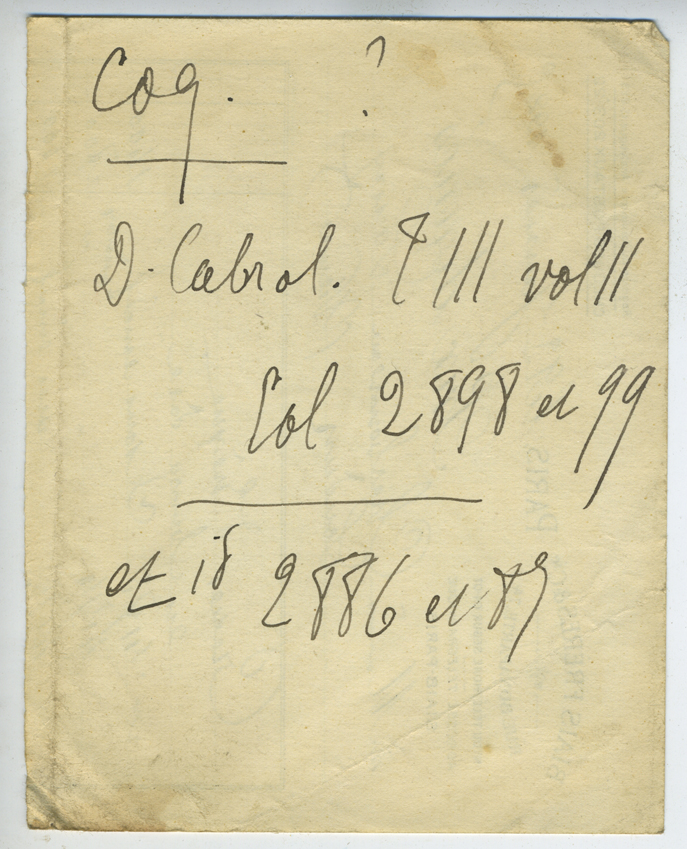 Coq. ?
D. Cabrol. T III vol II
Col 2898 et 99
et id 2886 et 87
PARIS